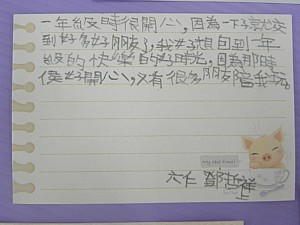 一年級時很開心,因為一下子就交
到好多好朋友了,我好想回到一年
級的快樂的好時光,因為那時
候好開心,又有很多朋友陪我玩。
六仁 鄭哲祥